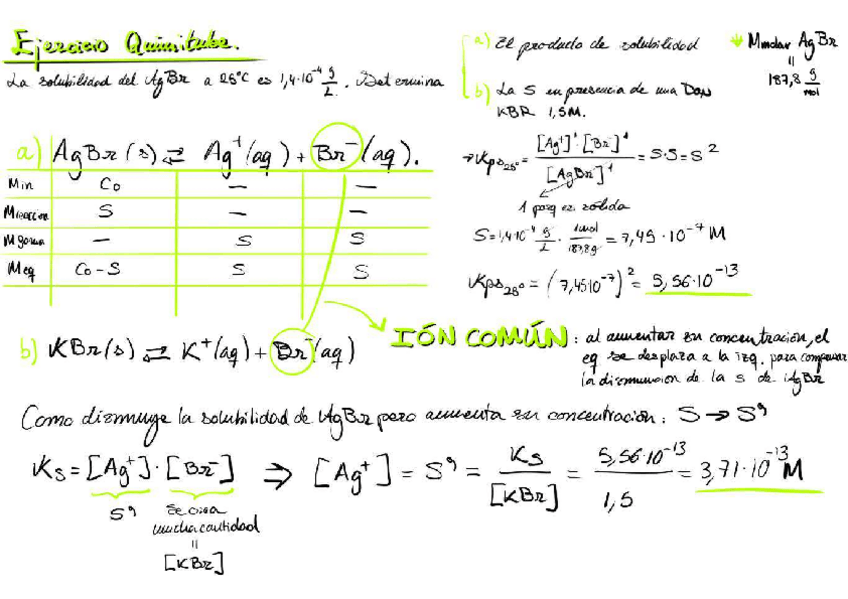 Ejercicio Quimitube.
La solubilidad del AgBr a 25°C es 1,4·10⁻⁴ g/L. Determina
a) El producto de solubilidad
b) La S en presencia de una
KBR 1,5M.
Mmolar AgBr
=
187,8 g/mol
a) AgBr (s) ⇄ Ag⁺ (aq) + Br⁻ (aq).
Min Co — —
Mreaccion S — —
Mgenera — S S
Meq Co-S S S
Kps25° = [Ag⁺]¹·[Br⁻]¹ / [AgBr]¹ = S·S = S²
1 porq es sólida
S = 1,4·10⁻⁴ g/L · 1mol/187,8g = 7,45·10⁻⁷ M
Kps25° = (7,45·10⁻⁷)² = 5,56·10⁻¹³
b) KBr (s) ⇄ K⁺ (aq) + Br⁻ (aq)
IÓN COMÚN: al aumentar su concentración, el
eq se desplaza a la izq. para compensar
la disminución de la S de AgBr
Como disminuye la solubilidad de AgBr pero aumenta su concentración: S → S'
Ks = [Ag⁺]·[Br⁻] ⇒ [Ag⁺] = S' = Ks/[KBr] = 5,56·10⁻¹³/1,5 = 3,71·10⁻¹³ M
S'
mucha cantidad
=
[KBr]